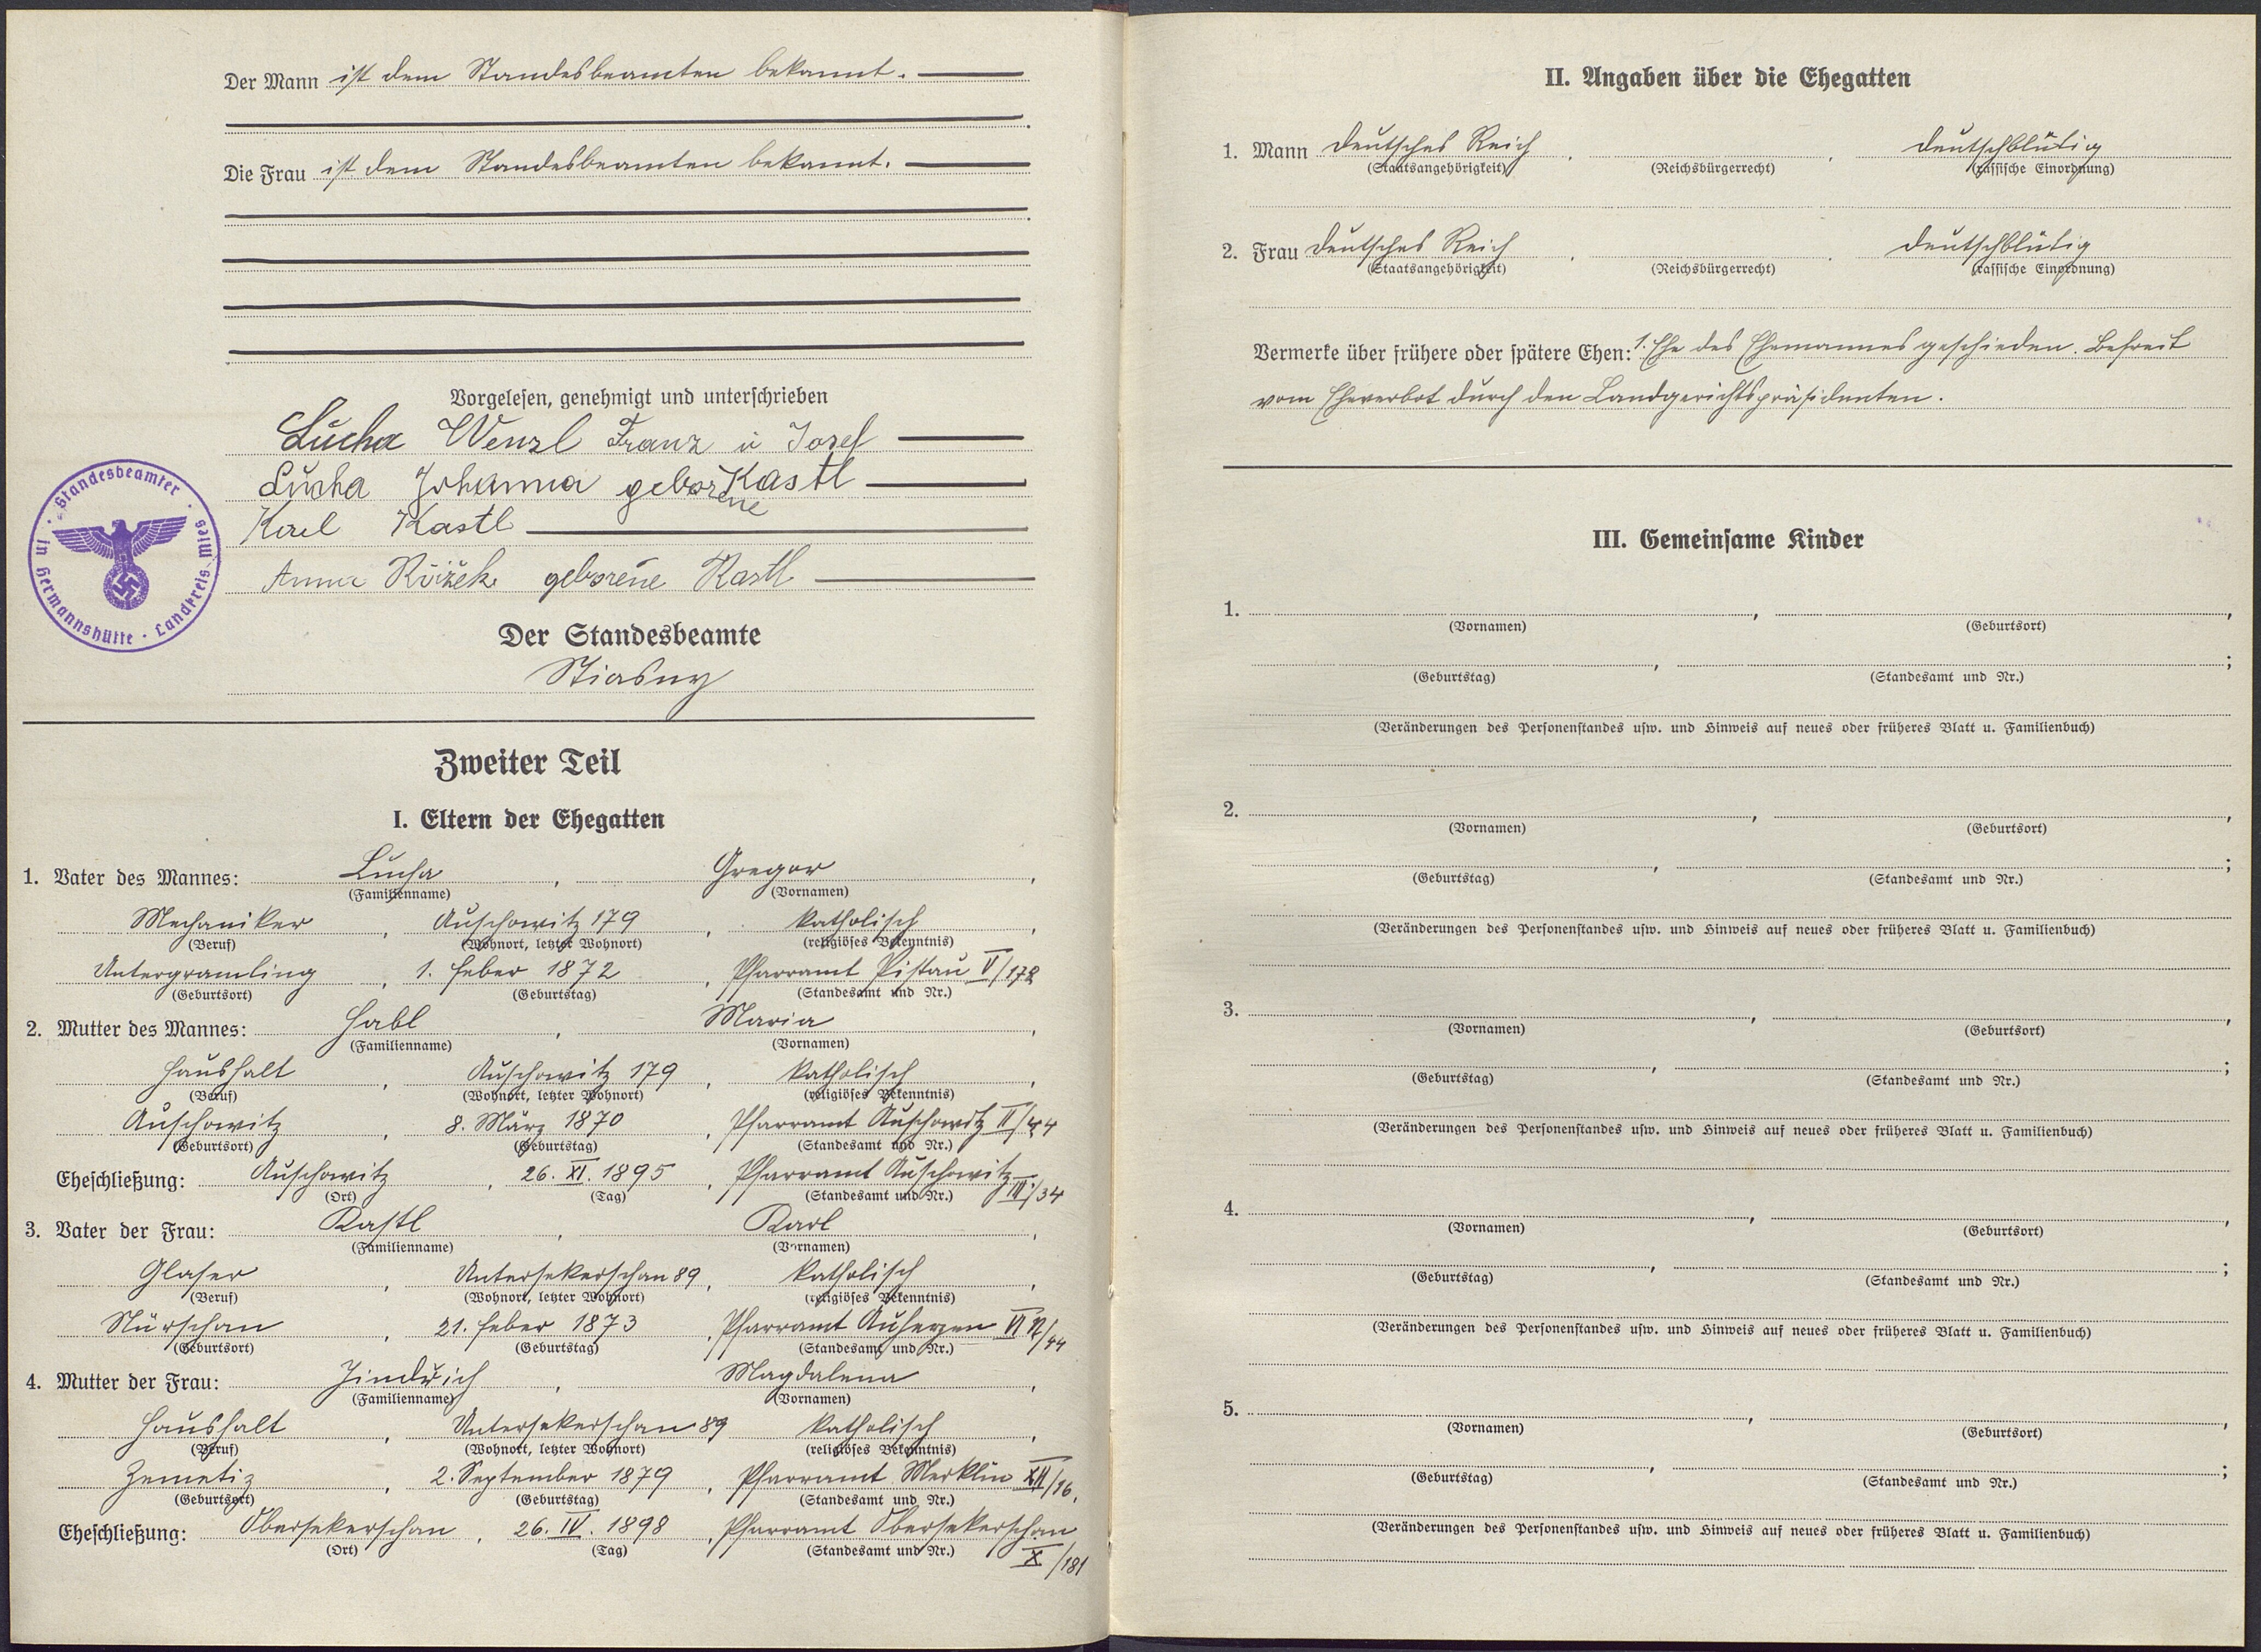 Der Mann ist dem Standesbeamten bekannt.
Die Frau ist dem Standesbeamten bekannt.
Vorgelesen, genehmigt und unterschrieben
Lucha Wenzl Franz u Josef
Lucha Johanna geborene Kastl
Karl Kastl
Anna Růžek geborene Kastl
Standesbeamter · in Hermannshütte · Landkreis Mies ·
Der Standesbeamte
Stiasny
Zweiter Teil
I. Eltern der Ehegatten
1. Vater des Mannes: Lucha, Gregor,
(Familienname) (Vornamen)
Mechaniker, Auschowitz 179, katholisch,
(Beruf) (Wohnort, letzter Wohnort) (religiöses Bekenntnis)
Untergramling, 1. Feber 1872, Pfarramt Pistau V/172
(Geburtsort) (Geburtstag) (Standesamt und Nr.)
2. Mutter des Mannes: Habl, Maria,
(Familienname) (Vornamen)
Haushalt, Auschowitz 179, katholisch,
(Beruf) (Wohnort, letzter Wohnort) (religiöses Bekenntnis)
Auschowitz, 8. März 1870, Pfarramt Auschowitz II/44
(Geburtsort) (Geburtstag) (Standesamt und Nr.)
Eheschließung: Auschowitz, 26. XI. 1895, Pfarramt Auschowitz III/34
(Ort) (Tag) (Standesamt und Nr.)
3. Vater der Frau: Kastl, Karl,
(Familienname) (Vornamen)
Glaser, Untersekerschan 89, katholisch,
(Beruf) (Wohnort, letzter Wohnort) (religiöses Bekenntnis)
Nürschan, 21. Feber 1873, Pfarramt Auherzen VI N/44
(Geburtsort) (Geburtstag) (Standesamt und Nr.)
4. Mutter der Frau: Jindřich, Magdalena,
(Familienname) (Vornamen)
Haushalt, Untersekerschan 89 katholisch,
(Beruf) (Wohnort, letzter Wohnort) (religiöses Bekenntnis)
Zemetiz, 2. September 1879, Pfarramt Merklin XII/16,
(Geburtsort) (Geburtstag) (Standesamt und Nr.)
Eheschließung: Obersekerschan, 26. IV. 1898, Pfarramt Obersekerschan X/181
(Ort) (Tag) (Standesamt und Nr.)
II. Angaben über die Ehegatten
1. Mann Deutsches Reich, , deutschblütig
(Staatsangehörigkeit) (Reichsbürgerrecht) (rassische Einordnung)
2. Frau Deutsches Reich, , deutschblütig
(Staatsangehörigkeit) (Reichsbürgerrecht) (rassische Einordnung)
Vermerke über frühere oder spätere Ehen: 1. Ehe des Ehemannes geschieden. Befreit
vom Eheverbot durch den Landgerichtspräsidenten.
III. Gemeinsame Kinder
1. , ,
(Vornamen) (Geburtsort)
, ;
(Geburtstag) (Standesamt und Nr.)
(Veränderungen des Personenstandes usw. und Hinweis auf neues oder früheres Blatt u. Familienbuch)
2. , ,
(Vornamen) (Geburtsort)
, ;
(Geburtstag) (Standesamt und Nr.)
(Veränderungen des Personenstandes usw. und Hinweis auf neues oder früheres Blatt u. Familienbuch)
3. , ,
(Vornamen) (Geburtsort)
, ;
(Geburtstag) (Standesamt und Nr.)
(Veränderungen des Personenstandes usw. und Hinweis auf neues oder früheres Blatt u. Familienbuch)
4. , ,
(Vornamen) (Geburtsort)
, ;
(Geburtstag) (Standesamt und Nr.)
(Veränderungen des Personenstandes usw. und Hinweis auf neues oder früheres Blatt u. Familienbuch)
5. , ,
(Vornamen) (Geburtsort)
, ;
(Geburtstag) (Standesamt und Nr.)
(Veränderungen des Personenstandes usw. und Hinweis auf neues oder früheres Blatt u. Familienbuch)